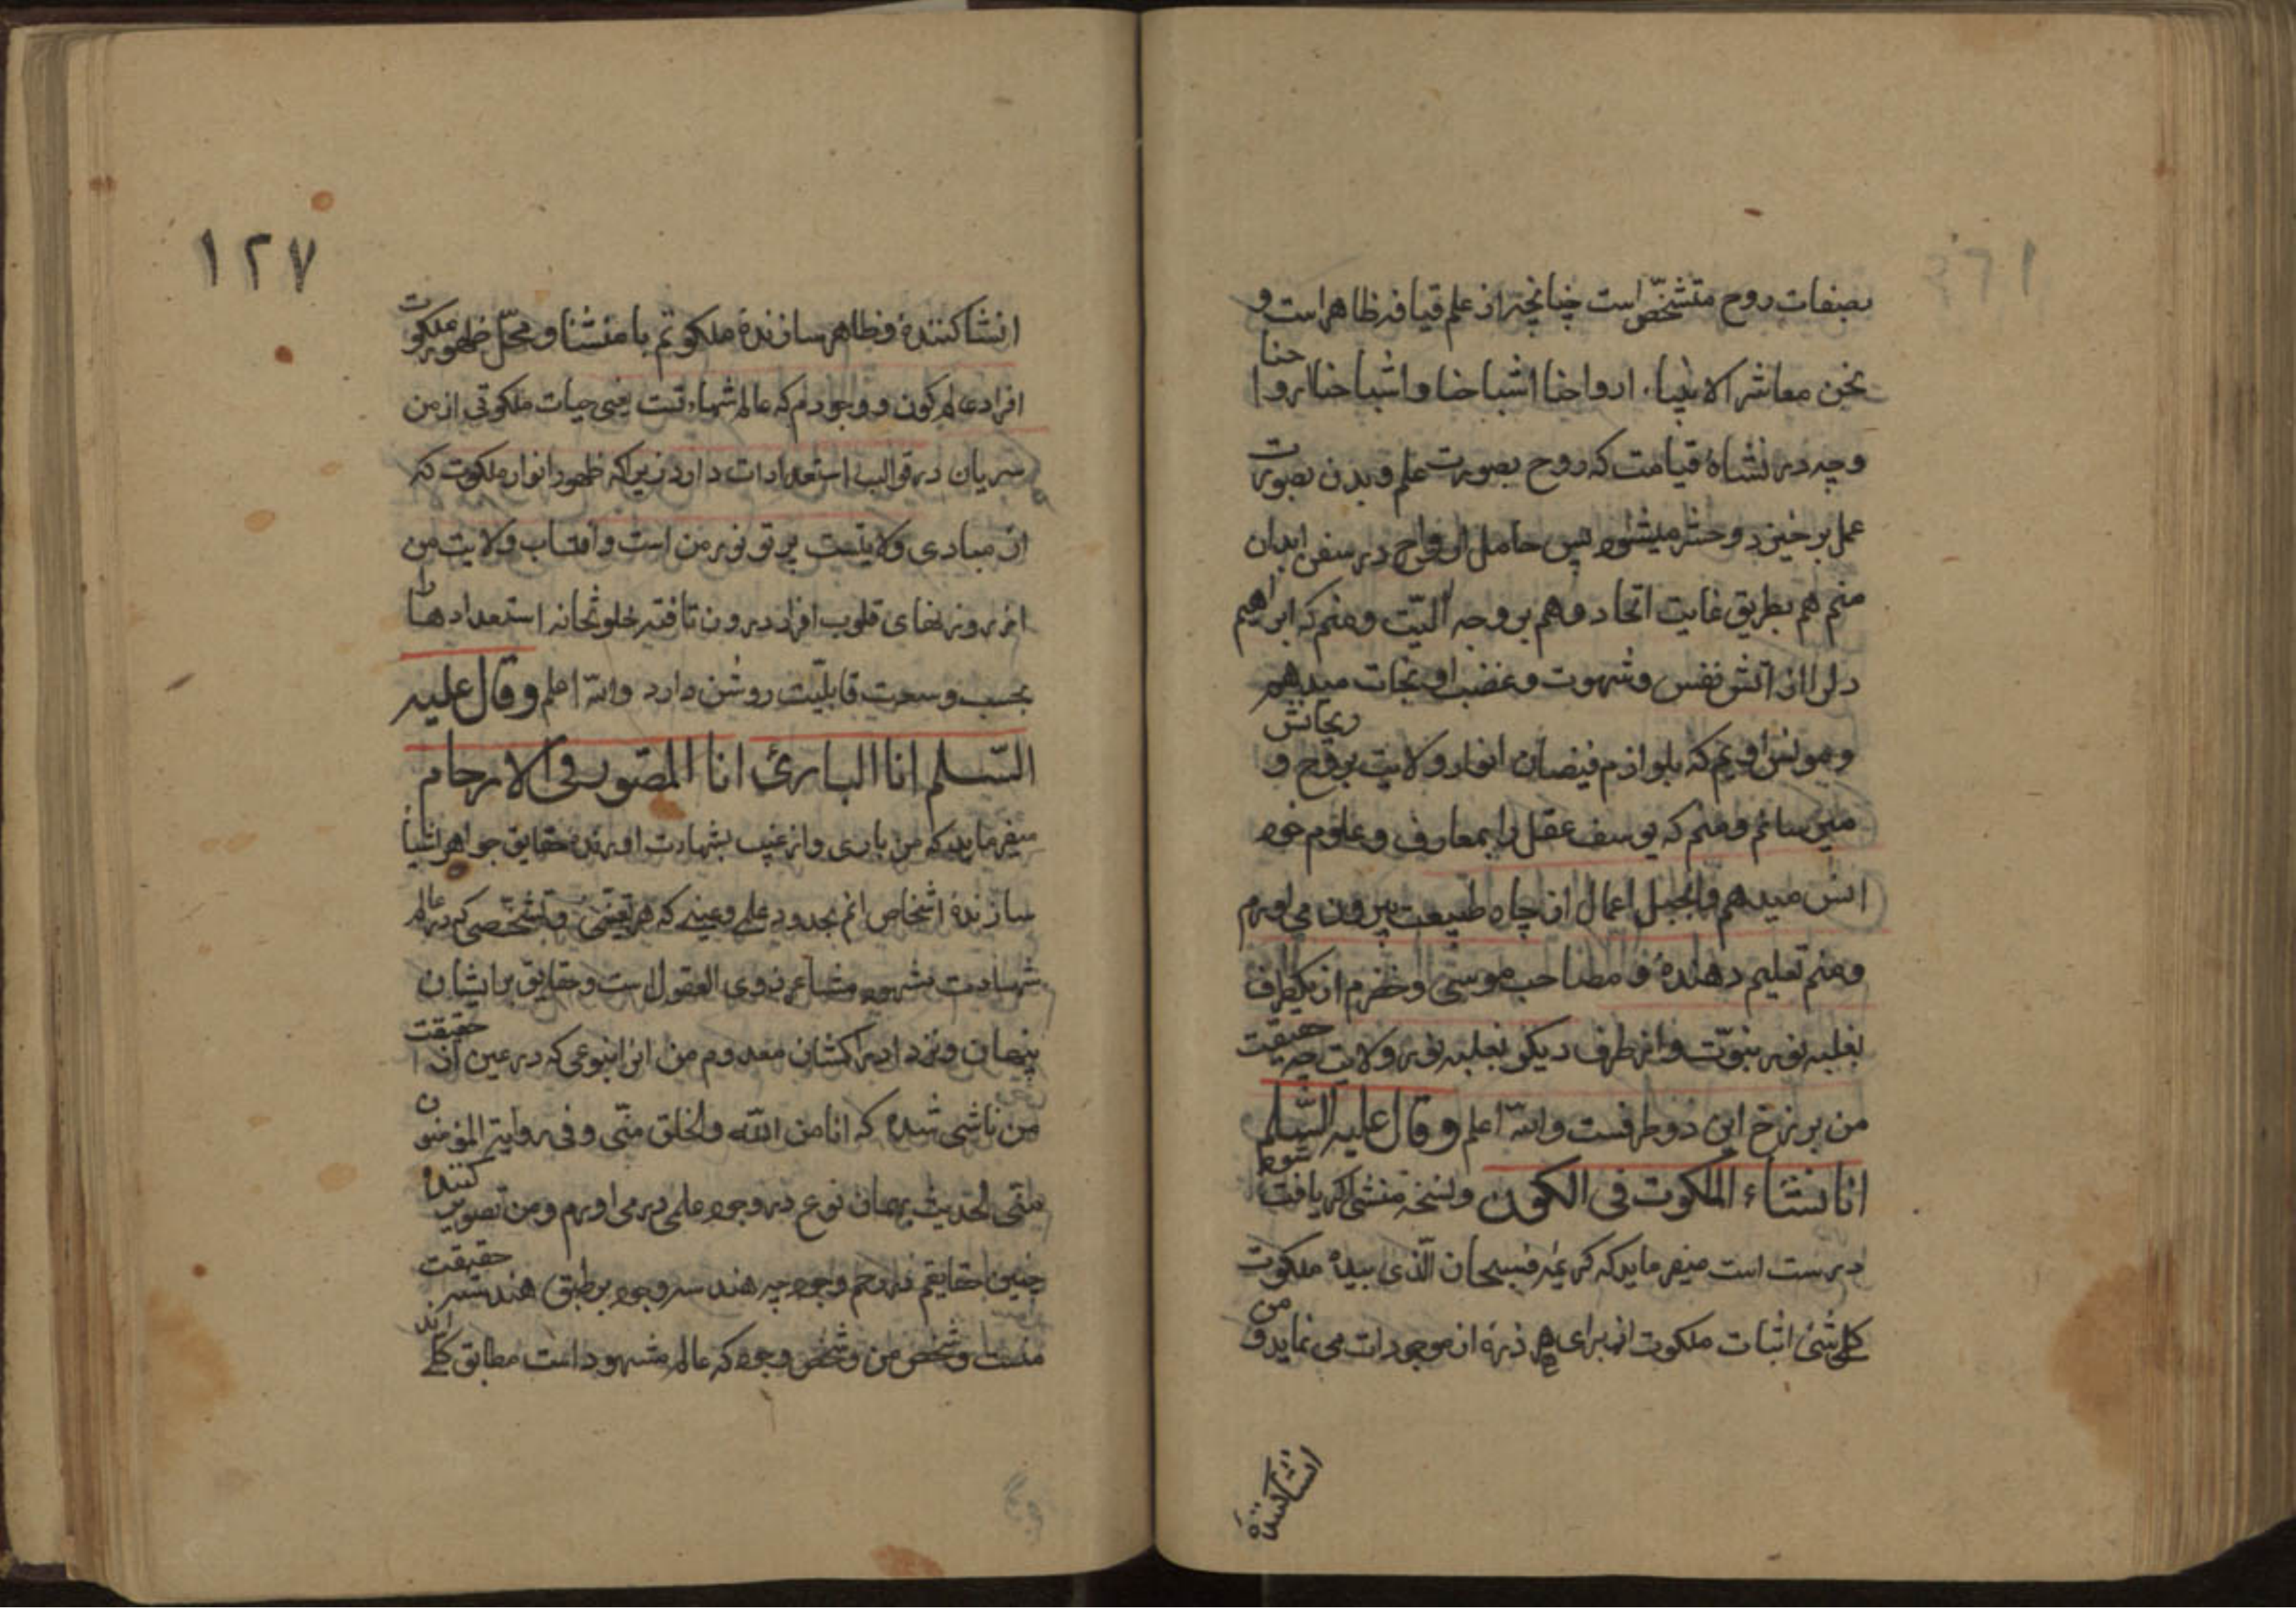 بصفات روح متشخّص است چنانچه از علم قیافه ظاهر است و
نحن معاشر الانبیاء ارواحنا اشباحنا و اشباحنا اروا حنا
و چه در نشاهٔ قیامت که روح بصورت علم و بدن بصورت
عمل بر خیزد و حشر میشود پس حامل ارواح در سفن ابدان
منم هم بطریق غایت اتحاد و هم بر وجه الیّت و منم که ابراهیم
دلرا از اتش نفس و شهوت و غضب او نجات میدهم
و مونس اویم که بلوازم فیضان انوار ولایت بروح و ریحانش
میرسانم و منم که یوسف عقل را بمعارف و علوم خود
انس میدهم و بحبل اعمال از چاه طبیعت بیرون می اورم
و منم تعلیم دهنده و مصاحب موسی و خضرم از یکطرف
بغلبه نور نبوّت و از طرف دیکر بغلبه نور ولایت چه حقیقت
من برزخ این دو طرفست والله اعلم و قال علیه السّلم
انا نشاء الملکوت فی الکون و نسخه منشی اکر یافت شود
درست است میفرماید که کریمه فسبحان الّذی بیده ملکوت
کل شئ اثبات ملکوت از برای هر ذرهٔ از موجودات می نماید و من
انشاکننده
۱۲۷
انشا کنندهٔ و ظاهر سازندهٔ ملکوتم با منشا و محلّ ظهور ملکوت
افراد عالم کون و وجودم که عالم شهادتست یعنی حیات ملکوتی از من
سریان در قوالب استعدادات دارد زیراکه ظهور انوار ملکوت که
از مبادی ولایتست پرتو نور من است و افتاب ولایت من
از روزنهای قلوب افراد درون تافته خلوتخانه استعدادها را
بحسب وسعت قابلیّت روشن دارد والله اعلم و قال علیه
السّلم انا البارئ انا المصّور فی الارحام
میفرماید که من باری و از غیب بشهادت اورنده حقایق جواهر اشیا
سازندهٔ اشخاص انم بحدود علمی و عینی که هر تعیّنی و تشخّصی که در عالم
شهادت مشهود مشاعر ذوی العقول است و حقایق بر ایشان
پنهان و نزد ادراکشان معدوم من انرا بنوعی که در عین ان حقیقت
من ناشی شده که انا من الله والخلق منّی و فی روایة المؤمنون
منّی الحدیث بهمان نوع در وجود علمی در می اورم و من تصویر کننده
جنین حقایقم در رحم وجود چه هندسه وجود بر طبق هندسه حقیقت
منست و شخص من و شخص وجود که عالم مشهود است مطابق کلی